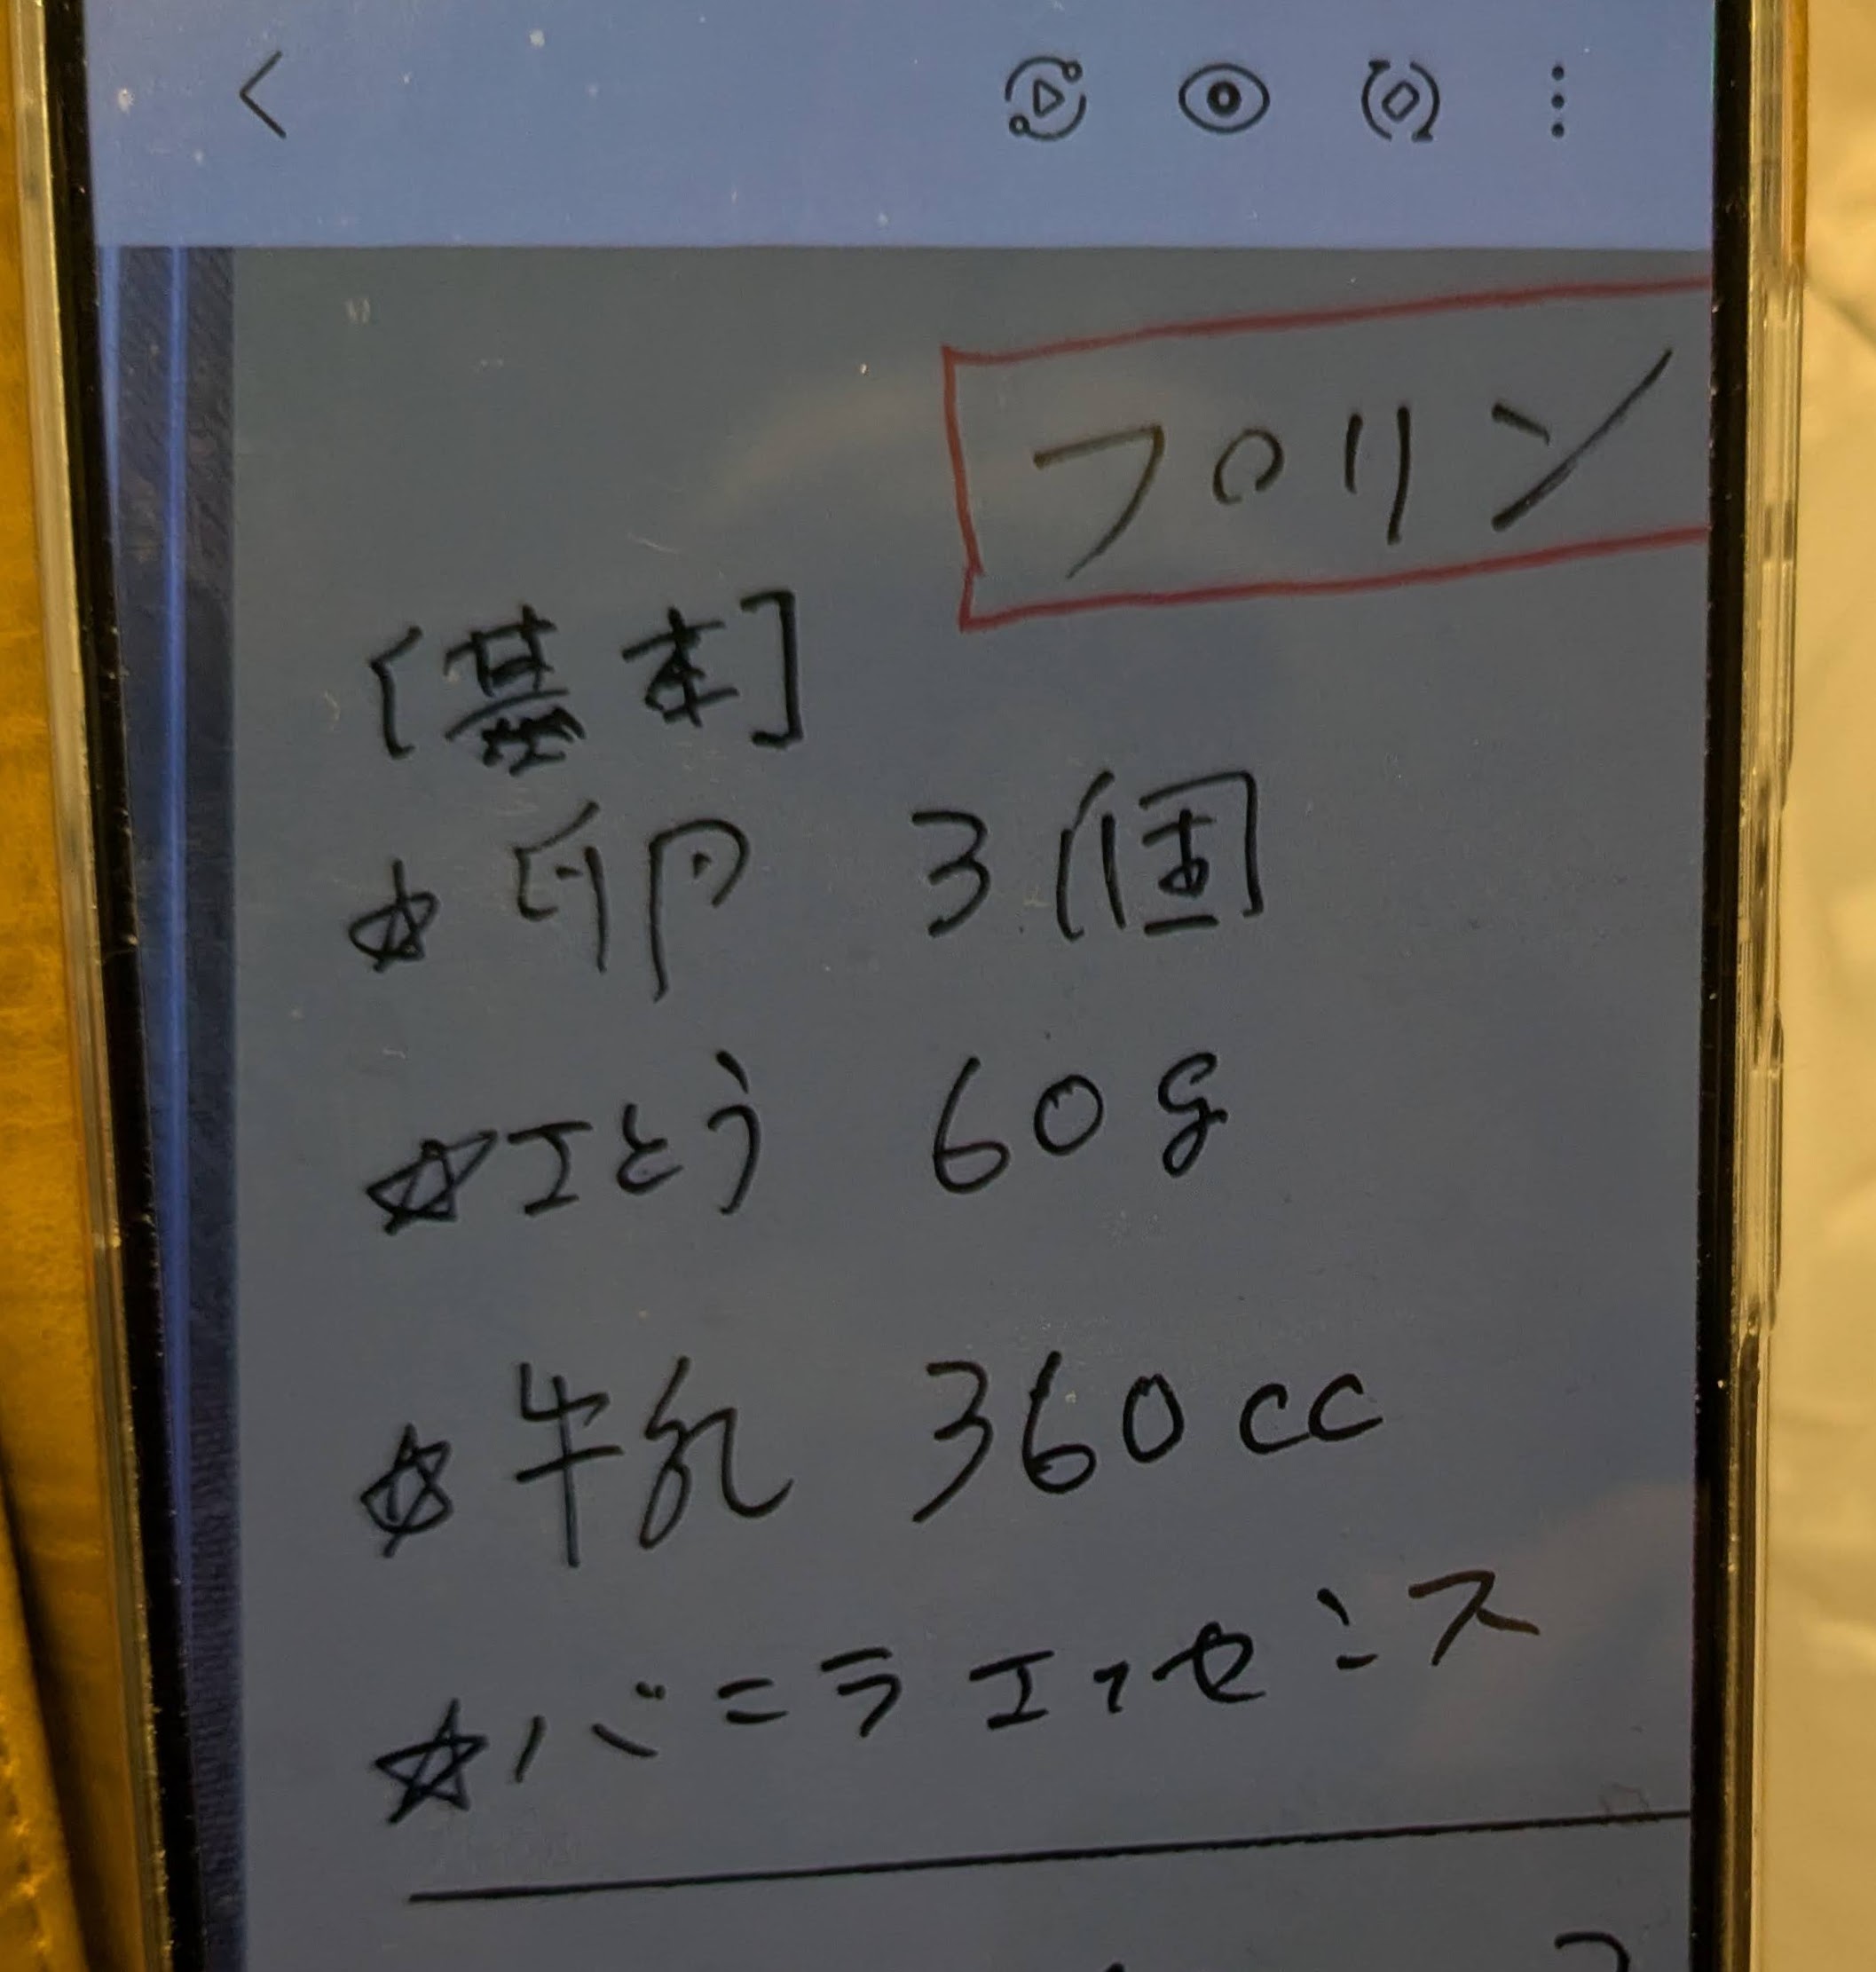 プリン
[基本]
☆卵 3個
☆さとう 60g
☆牛乳 360cc
☆バニラエッセンス